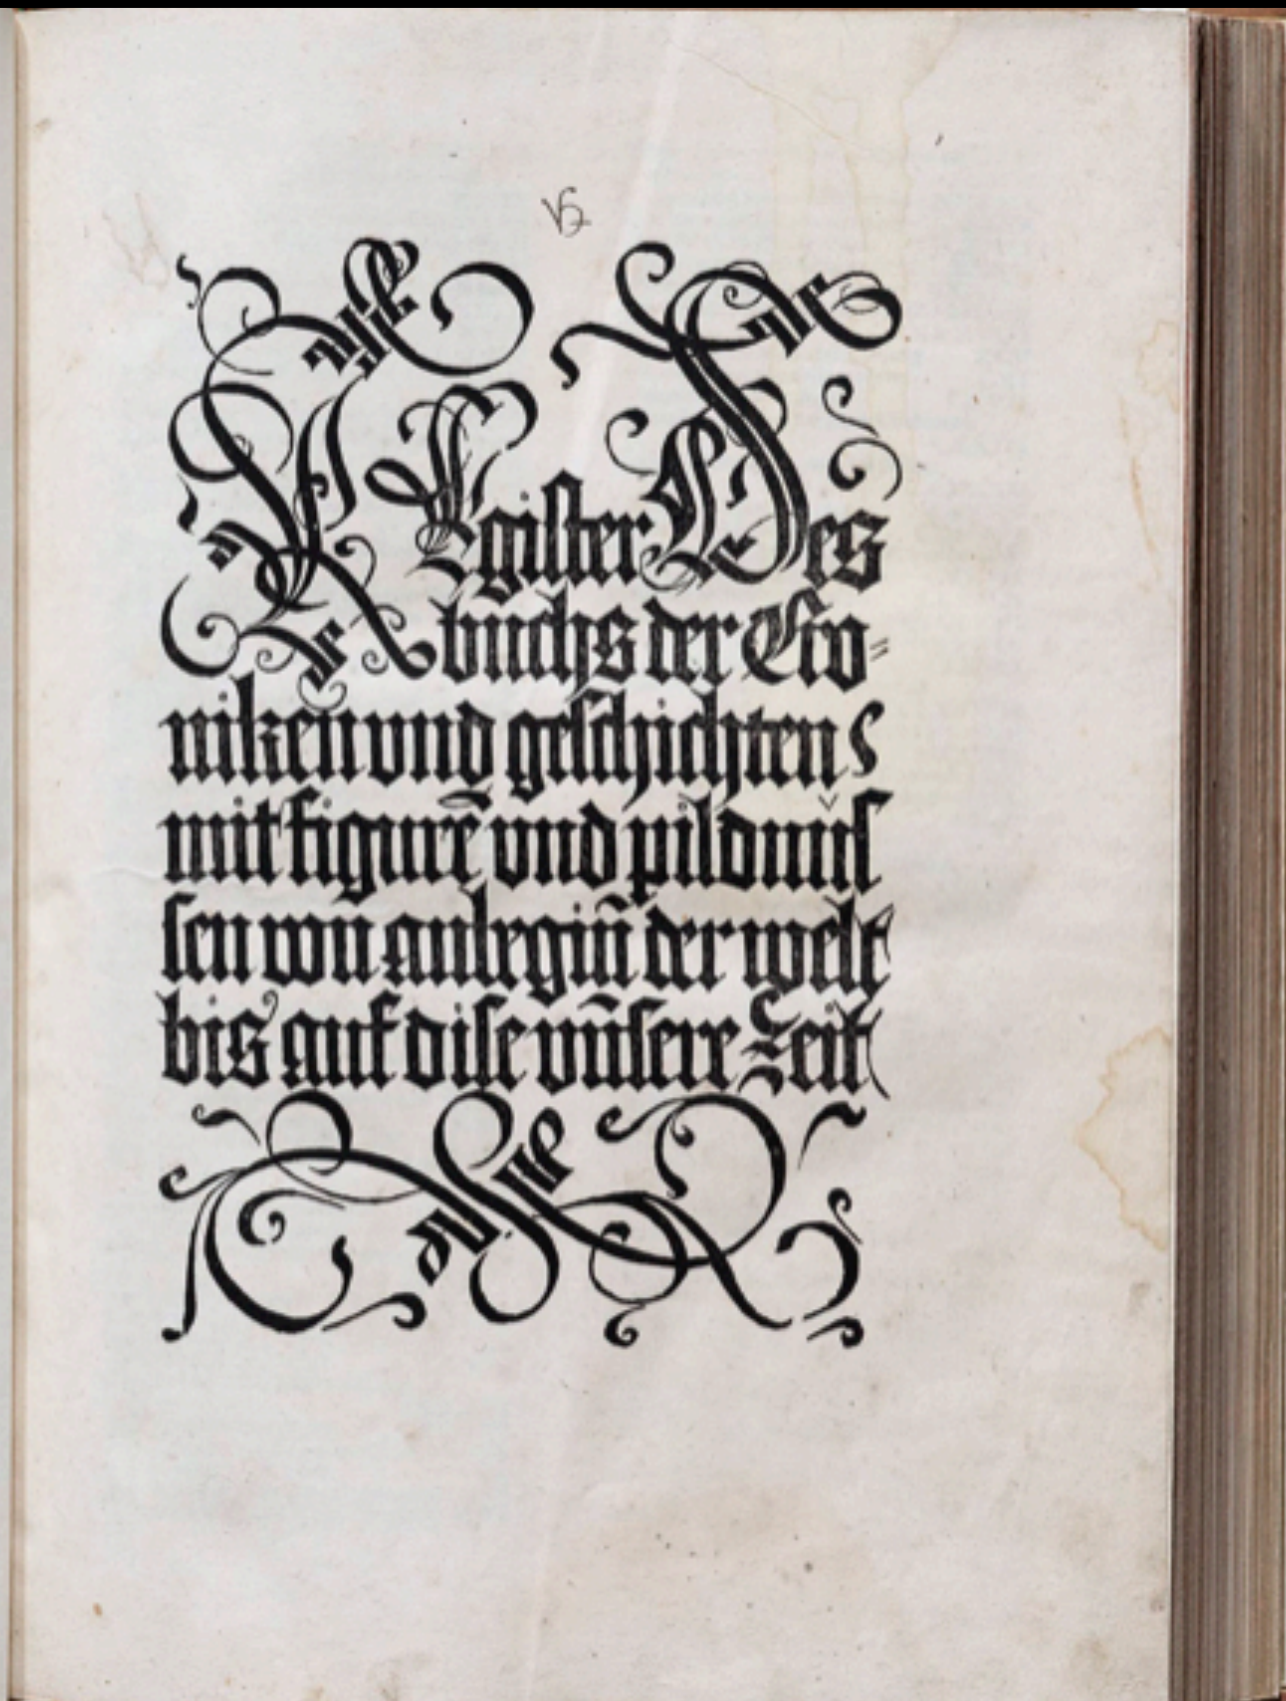 REgister Des
buchs der Cro=
niken vnd geschichten
mit figurē vnd pildnüs
sen von anbegiñ der welt
bis auf dise vñsere Zeit